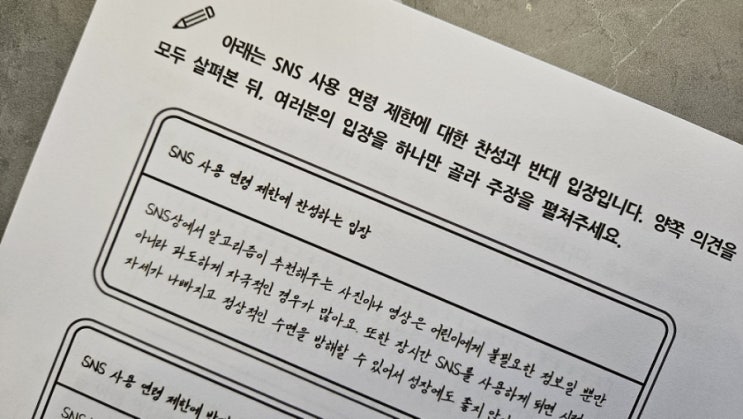 아래는 SNS 사용 연령 제한에 대한 찬성과 반대 입장입니다. 양쪽 의견을
모두 살펴본 뒤, 여러분의 입장을 하나만 골라 주장을 펼쳐주세요.
SNS 사용 연령 제한에 찬성하는 입장
SNS상에서 알고리즘이 추천해주는 사진이나 영상은 어린이에게 불필요한 정보일 뿐만
아니라 과도하게 자극적인 경우가 많아요. 또한 장시간 SNS를 사용하게 되면
자세가 나빠지고 정상적인 수면을 방해할 수 있어서 성장에도 좋지
SNS 사용 연령 제한에
SNS